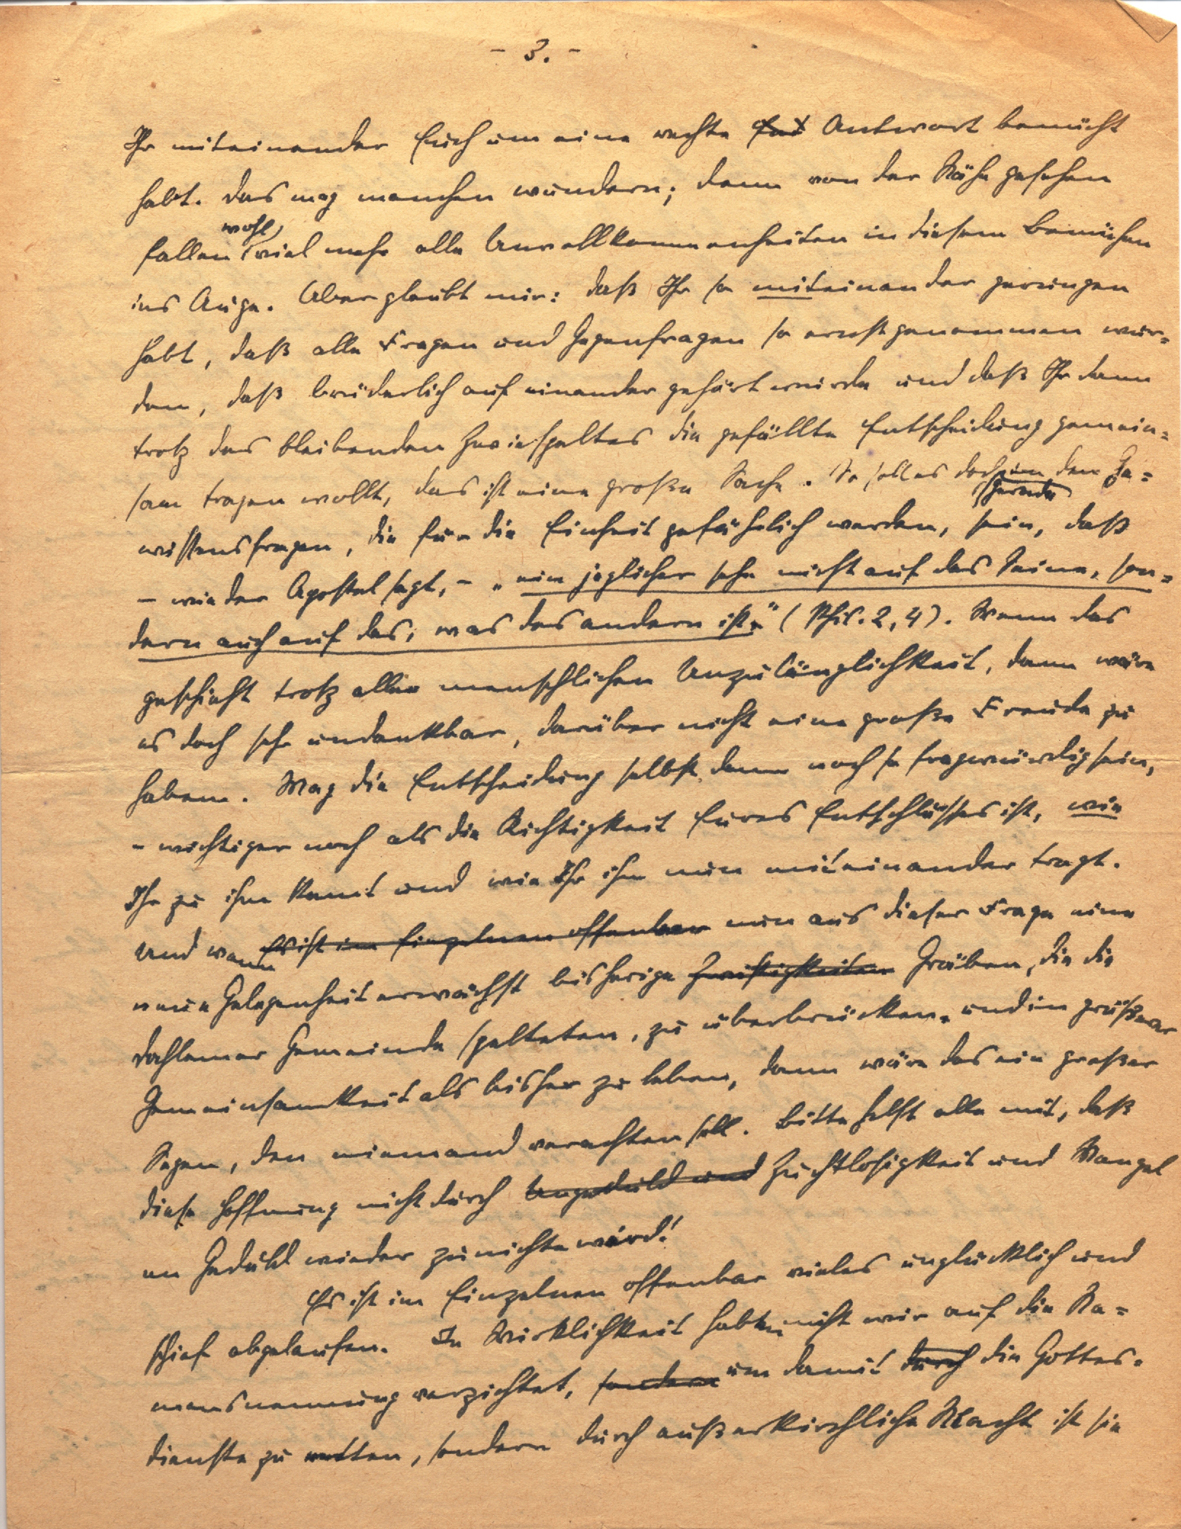 - 3. -
Ihr miteinander Euch um eine rechte Ant Antwort bemüht
habt. Das mag manchen wundern; denn von der Nähe gesehen
wohl
fallen viel mehr alle Unvollkommenheiten in diesem Bemühen
ins Auge. Aber glaubt mir: daß Ihr so miteinander gerungen
habt, daß alle Fragen und Gegenfragen so ernst genommen wur-
den, daß brüderlich auf einander gehört wurde und daß Ihr dann
trotz des bleibenden Zwiespaltes die gefällte Entscheidung gemein-
sam tragen wollt, das ist eine große Sache. So soll es doch in den Ge-
gerade
wissensfragen, die für die Einheit gefährlich werden, sein, daß
- wie der Apostel sagt, - "ein jeglicher sehe nicht auf das Seine, son-
dern auch auf das, was des andern ist." (Phil. 2, 4). Wenn das
geschieht trotz aller menschlichen Unzulänglichkeit, dann wäre
es doch sehr undankbar, darüber nicht eine große Freude zu
haben. Mag die Entscheidung selbst dann noch so fragwürdig sein,
- wichtiger noch als die Richtigkeit Eures Entschlusses ist, wie
Ihr zu ihm kamt und wie Ihr ihn nun miteinander tragt.
Und wenn Es ist im Einzelnen offenbar nun aus dieser Frage eine
neue Gelegenheit erwächst bisherige Zwistigkeiten Gräben, die die
Dahlemer Gemeinde spalteten, zu überbrücken und in größerer
Gemeinsamkeit als bisher zu leben, dann wäre das ein großer
Segen, den niemand verachten soll. Bitte helft alle mit, daß
diese Hoffnung nicht durch Ungeduld und Zuchtlosigkeit und Mangel
an Geduld wieder zunichte wird!
Es ist im Einzelnen offenbar vieles unglücklich und
schief abgelaufen. In Wirklichkeit haben nicht wir auf die Na-
mensnennung verzichtet, sondern um damit durch die Gottes-
dienste zu retten, sondern durch außerkirchliche Macht ist sie